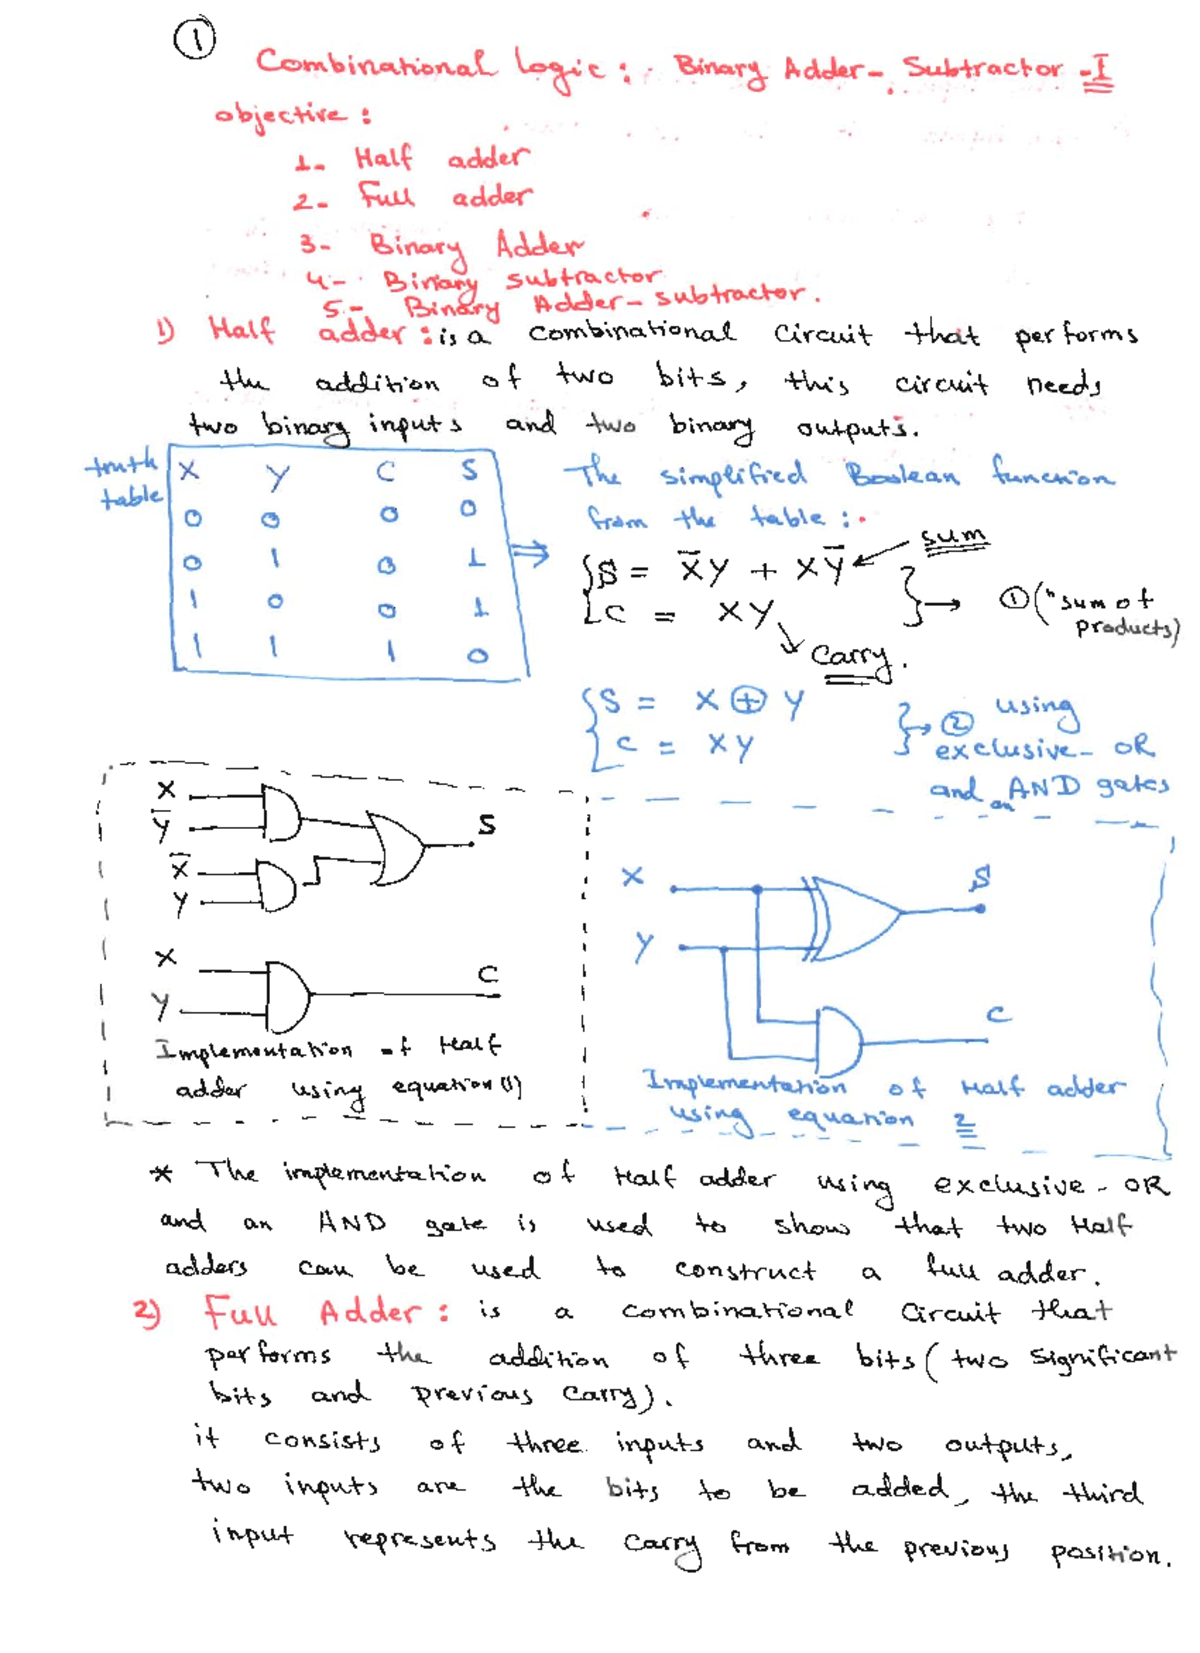 1
Combinational Logic: Binary Adder- Subtractor -I
objective:
1- Half adder
2- Full adder
3- Binary Adder
4- Binary subtractor
5- Binary Adder-subtractor.
1) Half adder: is a combinational circuit that performs
the addition of two bits, this circuit needs
two binary inputs and two binary outputs.
truth table
X Y C S
0 0 0 0
0 1 0 1
1 0 0 1
1 1 1 0
⇒
The simplified Boolean function
from the table:
S = X̅Y + XY̅ ← sum
C = XY
} → ① ("sum of
products)
carry.
S = X ⊕ Y
C = XY
} → ② using
exclusive-OR
and an AND gates
X
Y̅
X̅
Y
S
X
Y
C
Implementation of Half
adder using equation (1)
X
Y
S
C
Implementation of Half adder
using equation 2
* The implementation of Half adder using exclusive-OR
and an AND gate is used to show that two Half
adders can be used to construct a full adder.
2) Full Adder: is a combinational circuit that
performs the addition of three bits (two significant
bits and previous carry).
it consists of three inputs and two outputs,
two inputs are the bits to be added, the third
input represents the carry from the previous position.